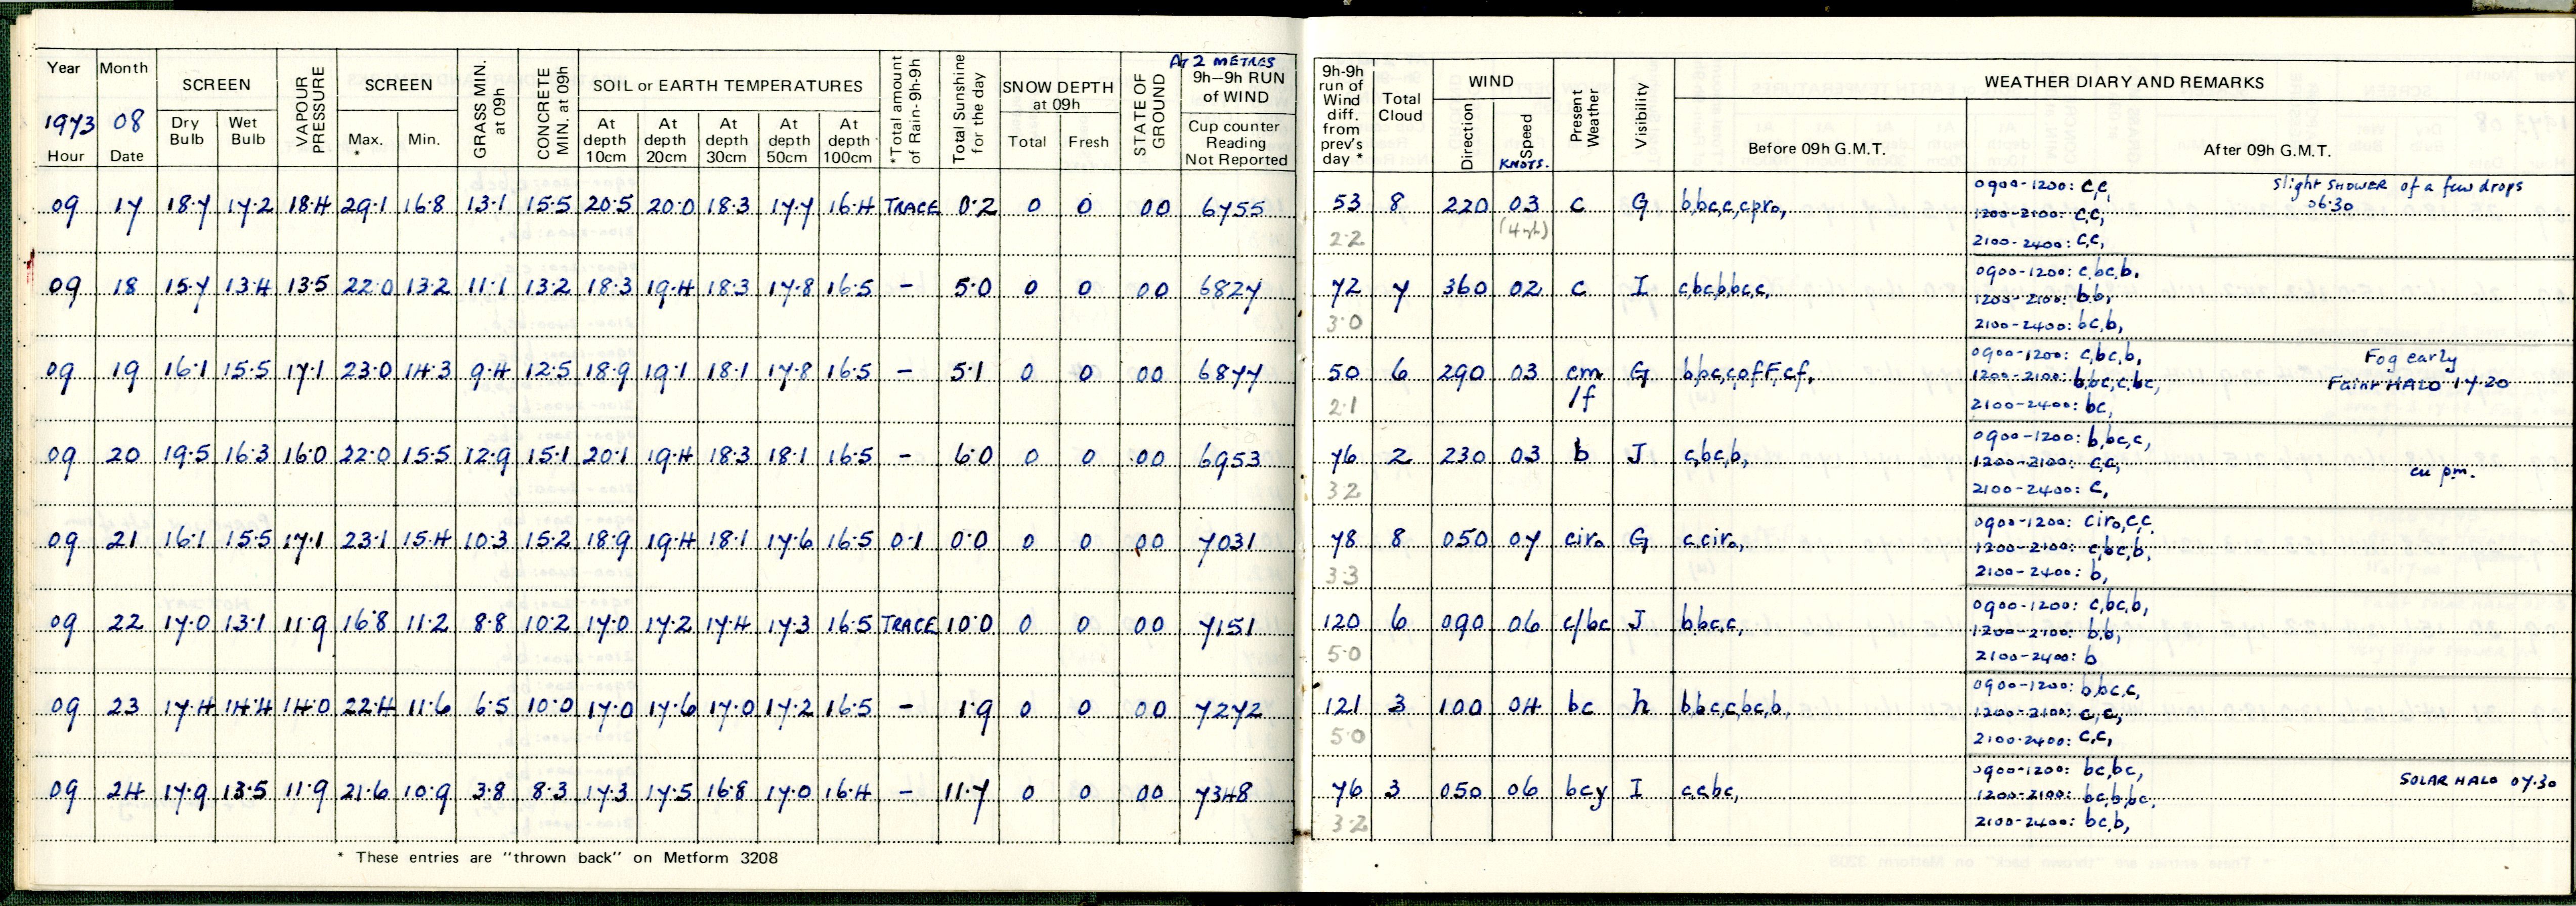 Year Month SCREEN VAPOUR PRESSURE SCREEN GRASS MIN. at 09h CONCRETE MIN. at 09h SOIL or EARTH TEMPERATURES *Total amount of Rain 9h-9h Total Sunshine for the day SNOW DEPTH at 09h STATE OF GROUND At 2 METRES 9h–9h RUN of WIND
1973 08 Dry Bulb Wet Bulb Max. * Min. At depth 10cm At depth 20cm At depth 30cm At depth 50cm At depth 100cm Total Fresh Cup counter Reading Not Reported
Hour Date
09 17 18.7 17.2 18.4 29.1 16.8 13.1 15.5 20.5 20.0 18.3 17.7 16.4 TRACE 0.2 0 0 00 6755
09 18 15.7 13.4 13.5 22.0 13.2 11.1 13.2 18.3 19.4 18.3 17.8 16.5 - 5.0 0 0 00 6827
09 19 16.1 15.5 17.1 23.0 14.3 9.4 12.5 18.9 19.1 18.1 17.8 16.5 - 5.1 0 0 00 6877
09 20 19.5 16.3 16.0 22.0 15.5 12.9 15.1 20.1 19.4 18.3 18.1 16.5 - 6.0 0 0 00 6953
09 21 16.1 15.5 17.1 23.1 15.4 10.3 15.2 18.9 19.4 18.1 17.6 16.5 0.1 0.0 0 0 00 7031
09 22 17.0 13.1 11.9 16.8 11.2 8.8 10.2 17.0 17.2 17.4 17.3 16.5 TRACE 10.0 0 0 00 7151
09 23 17.4 14.4 14.0 22.4 11.6 6.5 10.0 17.0 17.6 17.0 17.2 16.5 - 1.9 0 0 00 7272
09 24 17.9 13.5 11.9 21.6 10.9 3.8 8.3 17.3 17.5 16.8 17.0 16.4 - 11.7 0 0 00 7348
* These entries are "thrown back" on Metform 3208
9h-9h run of Wind diff. from prev's day * Total Cloud WIND Present Weather Visibility WEATHER DIARY AND REMARKS
Direction Speed KNOTS. Before 09h G.M.T. After 09h G.M.T.
0900-1200: c,c, Slight SHOWER of a few drops
53 8 220 03 c G b,bc,c,cpro, 1200-2100: c,c, 06.30
2.2 (4 mph) 2100-2400: c,c,
0900-1200: c,bc,b.
72 7 360 02 c I c,bc,b,bc,c, 1200-2100: b,b,
3.0 2100-2400: bc,b,
0900-1200: c,bc,b, Fog early
50 6 290 03 cm /f G b,bc,c,cfF,cf, 1200-2100: b,bc,c,bc, Faint HALO 17.20
2.1 2100-2400: bc,
0900-1200: b,bc,c,
76 2 230 03 b J c,bc,b, 1200-2100: c,c, cu pm.
3.2 2100-2400: c,
0900-1200: ciro,c,c,
78 8 050 07 ciro G c,ciro, 1200-2100: c,bc,b,
3.3 2100-2400: b,
0900-1200: c,bc,b,
120 6 090 06 c/bc J b,bc,c, 1200-2100: b,b,
5.0 2100-2400: b
0900-1200: b,bc,c,
121 3 100 04 bc h b,bc,c,bc,b, 1200-2100: c,c,
5.0 2100-2400: c,c,
0900-1200: bc,bc, SOLAR HALO 07.30
76 3 050 06 bcy I c,c,bc, 1200-2100: bc,b,bc,
3.2 2100-2400: bc,b,